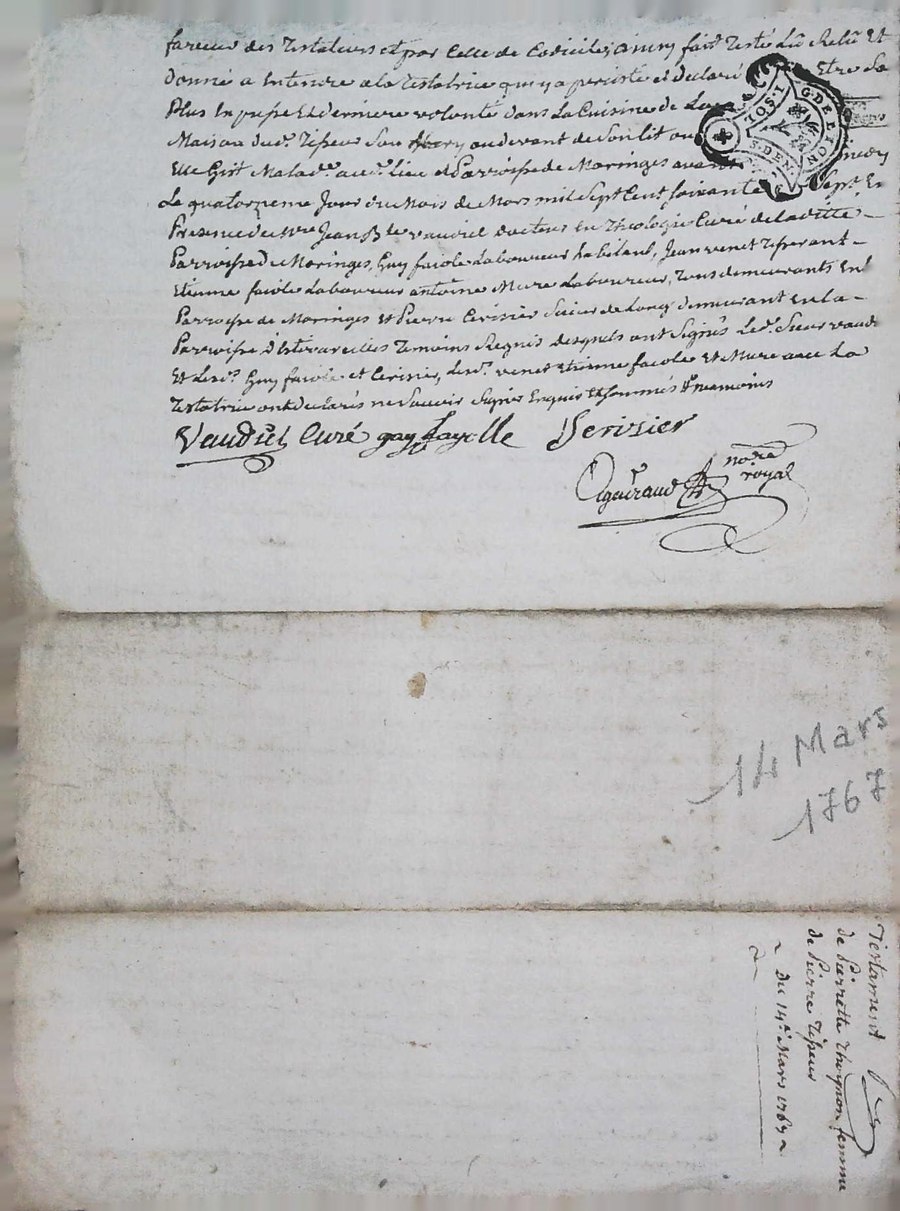 faveur des Testateurs et par Celle de Codicile, ainsy fait Testé Lû Relû Et
donné a Entendre a la testatrice quy y a percisté et declaré Etre Sa
Plus Expresse Et derniere volonté dans La Cuisine de La
Maison dud. Tipeur Son au devant de Son lit ou
Elle Gist Malade au Lieu et Parroisse de Maringes avant
Le quatorzeme Jour du Mois de Mars mil Sept Cent Soixante Sept En
Presence de Jean docteur En Theologie Curé de laditte
Parroisse de Maringes, Guy faiole Laboureur habitant, Jean venet Tisserant
Etienne faiole Laboureur antoine Mure Laboureur, Tous demeurants En
Parroisse de Maringes Et Pierre Cerisier Scieur de Long demeurant En la
Parroisse Temoins Requis desquels ont Signés Led. Sieur
Et Lesd. Guy faiole et Cerisier, Lesd. venet Etienne faiole Et Mure avec La
Testatrice ont declarés ne Scavoir Signer Enquis Et Sommés
Curé guy fayolle Serisier
nore
royal
G. DE LION
2. SOL
S. DEN.
14 Mars
1767
Testament
de Pierrette thognon femme
de Pierre Tipeur
Du 14e Mars 1767